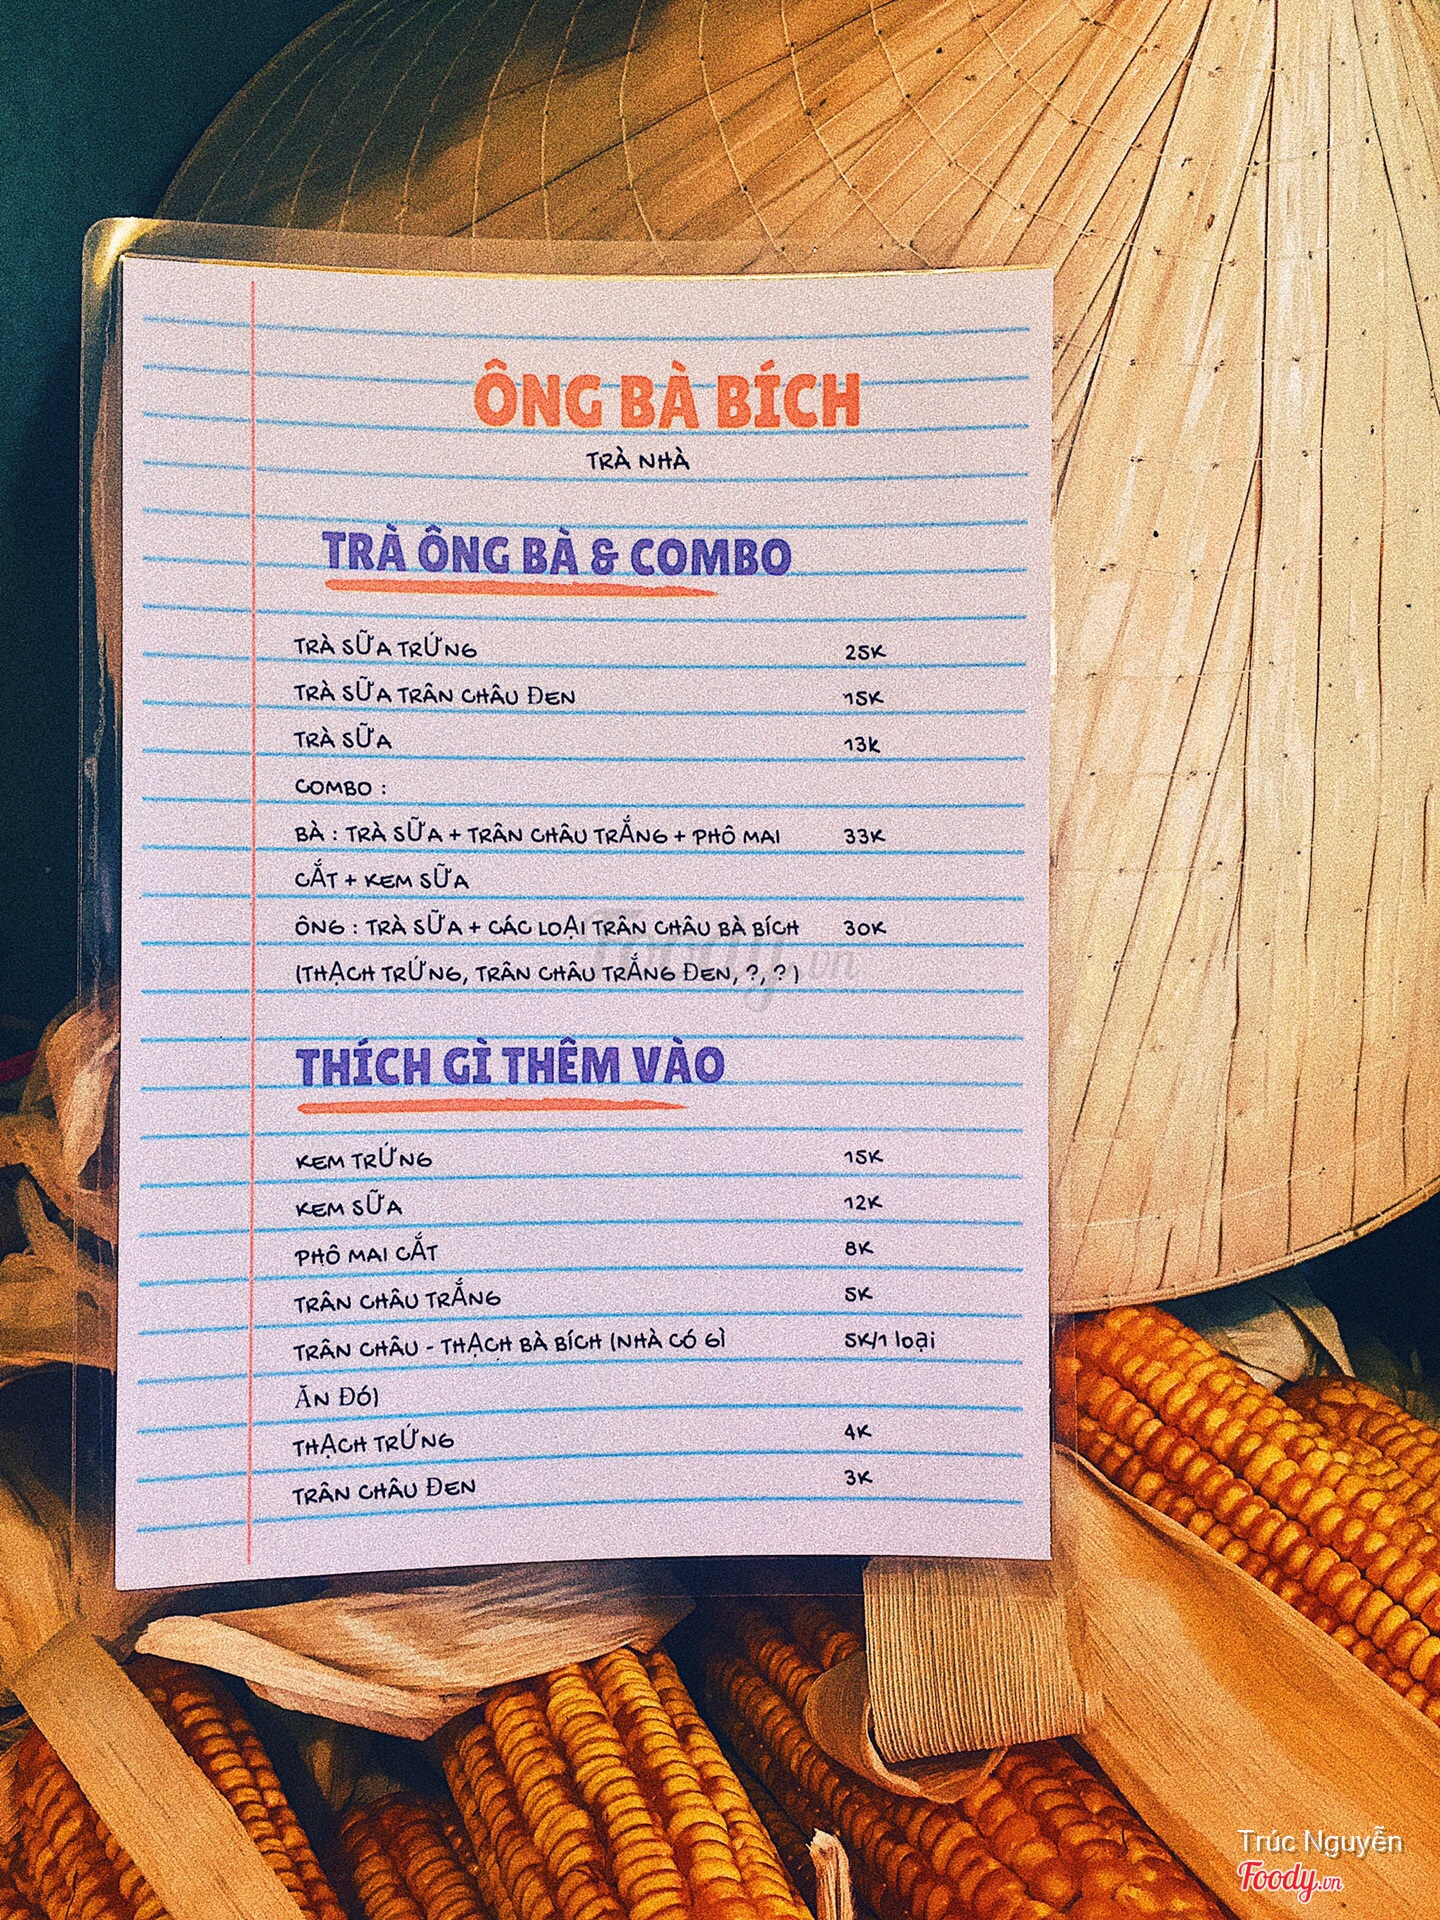 ÔNG BÀ BÍCH
TRÀ NHÀ
TRÀ ÔNG BÀ & COMBO
TRÀ SỮA TRỨNG 25K
TRÀ SỮA TRÂN CHÂU ĐEN 15K
TRÀ SỮA 13K
COMBO :
BÀ : TRÀ SỮA + TRÂN CHÂU TRẮNG + PHÔ MAI 33K
CẮT + KEM SỮA
ÔNG : TRÀ SỮA + CÁC LOẠI TRÂN CHÂU BÀ BÍCH 30K
(THẠCH TRỨNG, TRÂN CHÂU TRẮNG ĐEN, ?, ? )
Foody.vn
THÍCH GÌ THÊM VÀO
KEM TRỨNG 15K
KEM SỮA 12K
PHÔ MAI CẮT 8K
TRÂN CHÂU TRẮNG 5K
TRÂN CHÂU - THẠCH BÀ BÍCH (NHÀ CÓ GÌ 5K/1 loại
ĂN ĐÓ)
THẠCH TRỨNG 4K
TRÂN CHÂU ĐEN 3K
Trúc Nguyễn
Foody.vn